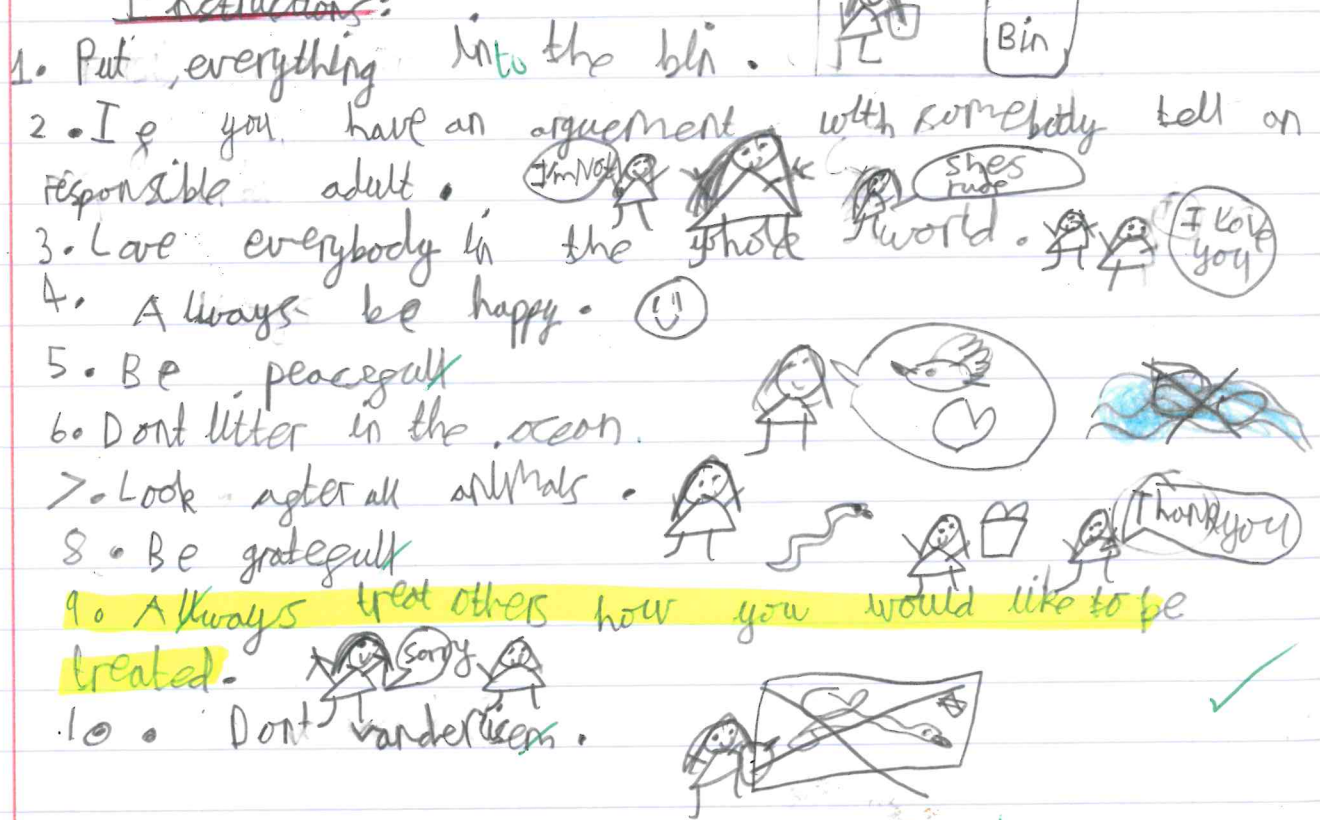 Instructions:
1. Put everything into the bin.
Bin
2. If you have an arguement with somebody tell an
responsible adult.
I'm Not
shes
rude
3. Love everybody in the whole world.
I love
you
4. Allways be happy.
5. Be peacefull
6. Dont litter in the ocean.
7. Look after all animals.
8. Be gratefull
Thankyou
9. Allways treat others how you would like to be
treated.
Sorry
10. Dont vanderlisem.